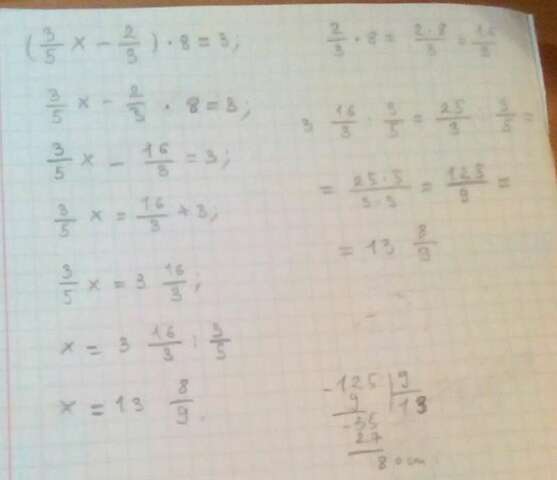 (3/5 x - 2/3) · 8 = 3;
3/5 x - 2/3 · 8 = 3;
3/5 x - 16/3 = 3;
3/5 x = 16/3 + 3;
3/5 x = 3 16/3;
x = 3 16/3 : 3/5
x = 13 8/9.
2/3 · 8 = 2·8/3 = 16/3
3 16/3 : 3/5 = 25/3 : 3/5 =
= 25·5/3·3 = 125/9 =
= 13 8/9
-125 | 9
9 | 13
-35
27
8 ост.